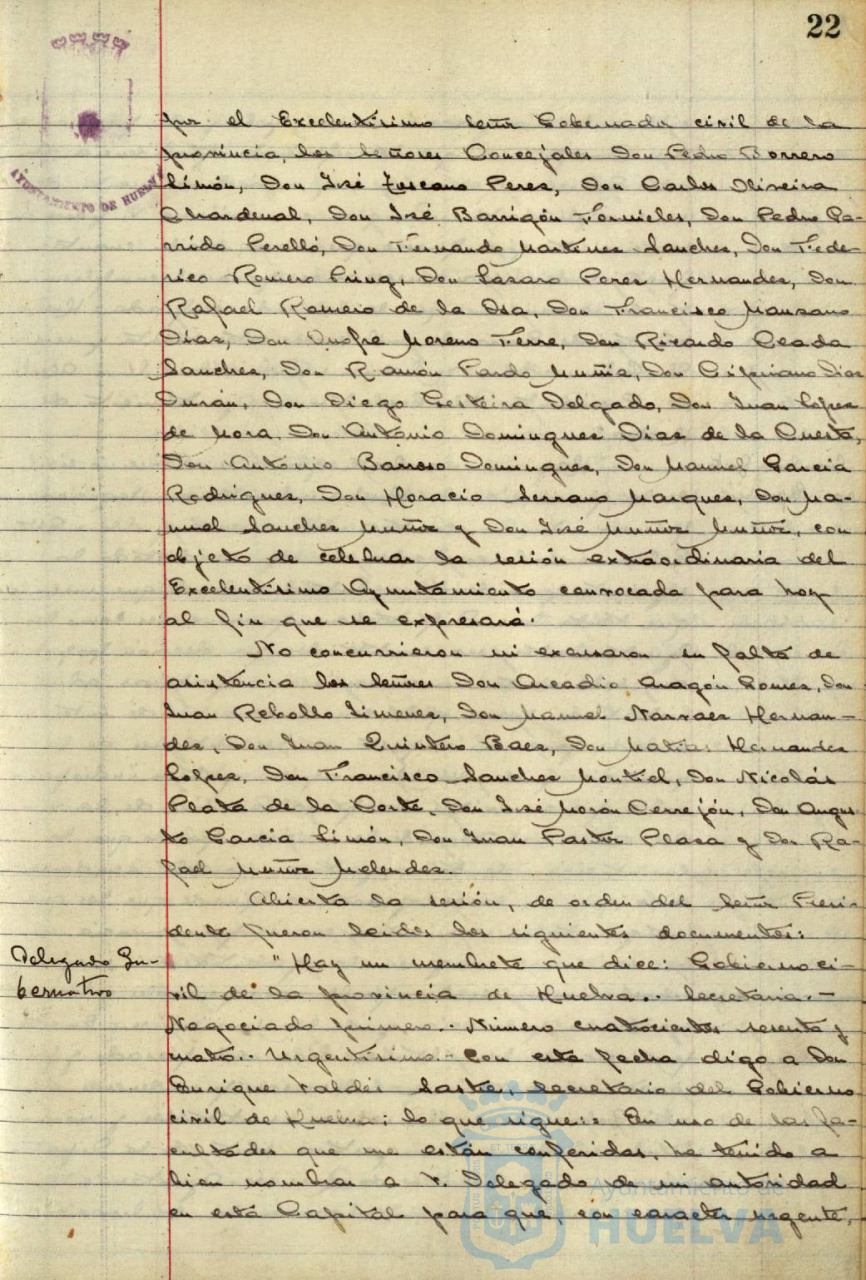 22
AYUNTAMIENTO DE HUELVA
por el Excelentísimo Señor Gobernador civil de la
provincia, los Señores Concejales Don Pedro Borrero
Limón, Don José Toscano Peres, Don Carlos Oliveira
Chardenal, Don José Barrigón Fornieles, Don Pedro Ga-
rrido Perelló, Don Fernando Martines Sanches, Don Fede-
rico Romero Pring, Don Lasaro Peres Hernandes, Don
Rafael Romero de la Osa, Don Francisco Mansano
Dias, Don Onofre Moreno Ferre, Don Ricardo Ceada
Sanches, Don Ramón Pardo Muñis, Don Cipriano Dias
Durán, Don Diego Gesteira Delgado, Don Juan Lopes
de Mora, Don Antonio Domingues Dias de la Cuesta,
Don Antonio Barroso Domingues, Don Manuel Garcia
Rodrigues, Don Horacio Serrano Marques, Don Ma-
nuel Sanches Muños y Don José Muños Muños, con
objeto de celebrar la sesión extraordinaria del
Excelentísimo Ayuntamiento convocada para hoy
al fin que se expresará.
No concurrieron ni excusaron su falta de
asistencia los Señores Don Arcadio Aragón Gomes, Don
Juan Rebollo Jimenes, Don Manuel Narvaes Hernan-
des, Don Juan Quintero Baes, Don Matias Hernandes
Lopes, Don Francisco Sanches Montiel, Don Nicolás
Plata de la Corte, Don José Morón Cerrejón, Don Augus
to Garcia Limón, Don Juan Pastor Plasa y Don Ra-
fael Muños Melendes.
Abierta la sesión, de orden del Señor Presi-
dente fueron leidos los siguientes documentos:
Delegado Gu-
bernativo
"Hay un membrete que dice: Gobierno ci-
vil de la provincia de Huelva.- Secretaria.-
Negociado primero.- Número cuatrocientos sesenta y
cuatro.- Urgentísimo.- Con esta fecha digo a Don
Enrique Valdés Sastre, Secretario del Gobierno
civil de Huelva; lo que sigue:= En uso de las fa-
cultades que me están conferidas, he tenido a
bien nombrar a V. Delegado de mi autoridad
en esta Capital para que, con caracter urgente,
Ayuntamiento de
HUELVA